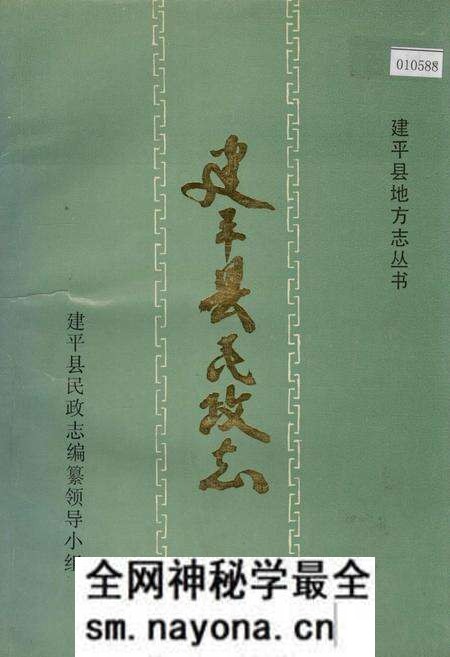 010588
建平县地方志丛书
建平县民政志
建平县民政志编纂领导小组
全网神秘学最全
sm.nayona.cn